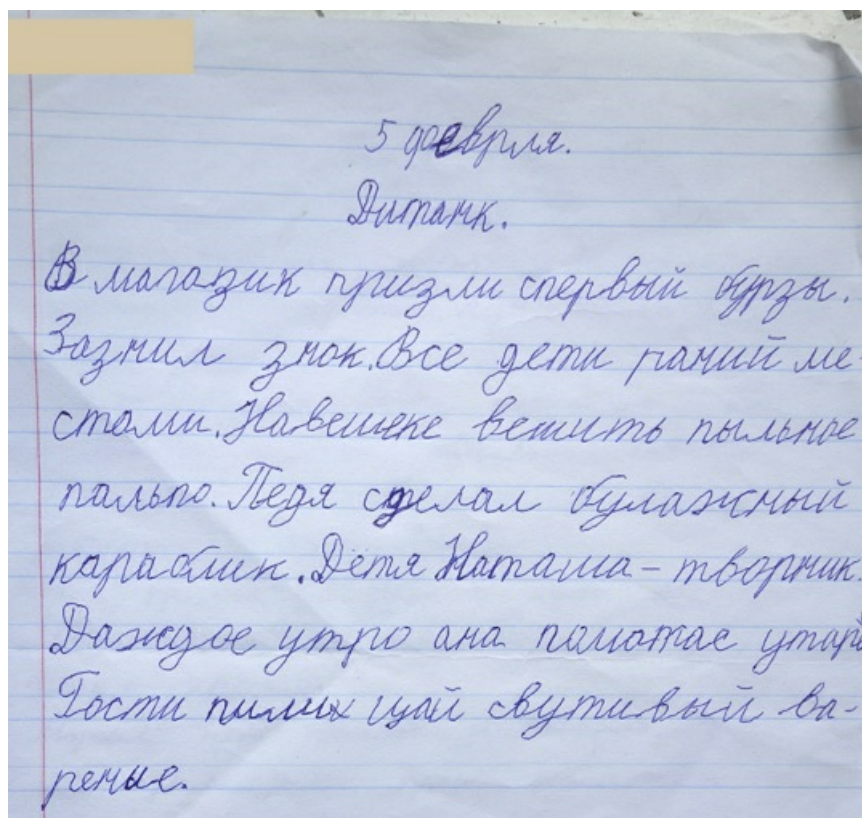 5 феврля.
Дитанк.
В магазик призли спервый бурзы.
Зазнил знок. Все дети раний ме-
стами. Навешеке вешить пыльное
пальпо. Педя сделал булажный
карабликк. Дётя Наташа - творник.
Даждое утро ана паможае утара
Гости пилих щай свутивый ва-
рение.